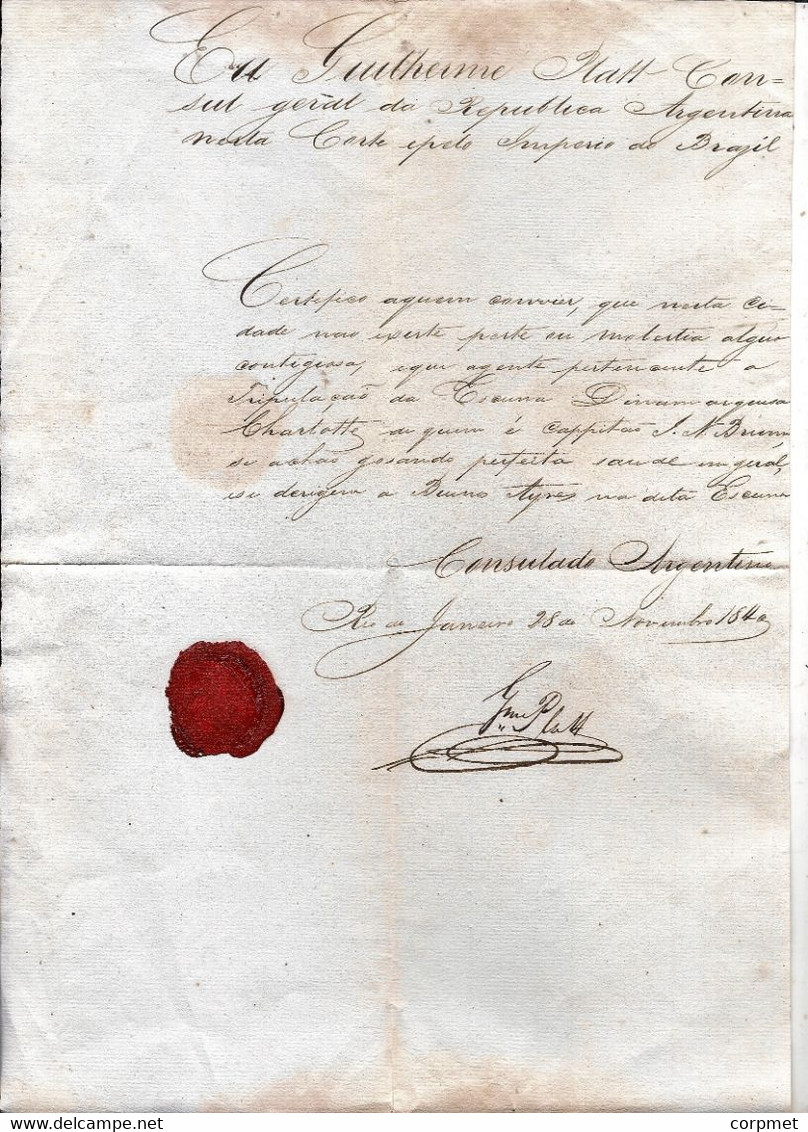 Eu Guilherme Platt Con-
sul geral da Republica Argentina
nesta Corte epelo Imperio do Brazil
Certefico aquem convier, que nesta ci-
dade nao existe peste ou molestia algua
contigiosa, eque agente pertencente a
Tripulação da Escuna Dinamarquesa
Charlotte de quem é Cappitão J. N. 
se achão gosando perfeita saude em geral,
ese derigem a Buenos Ayres na dita Escuna
Consulado Argentino
Rio de Janeiro 28 de Novembro 1840
Gme Platt
www.delcampe.net
corpmet